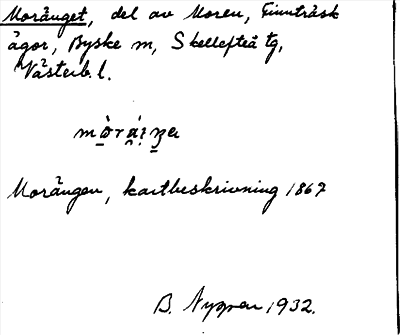 Moränget, del av Moren, Finnträsk
ägor, Byske sn, Skellefteå tg,
Västerb. l.
Morängen, kartbeskrivning 1867
B. Nygren 1932.